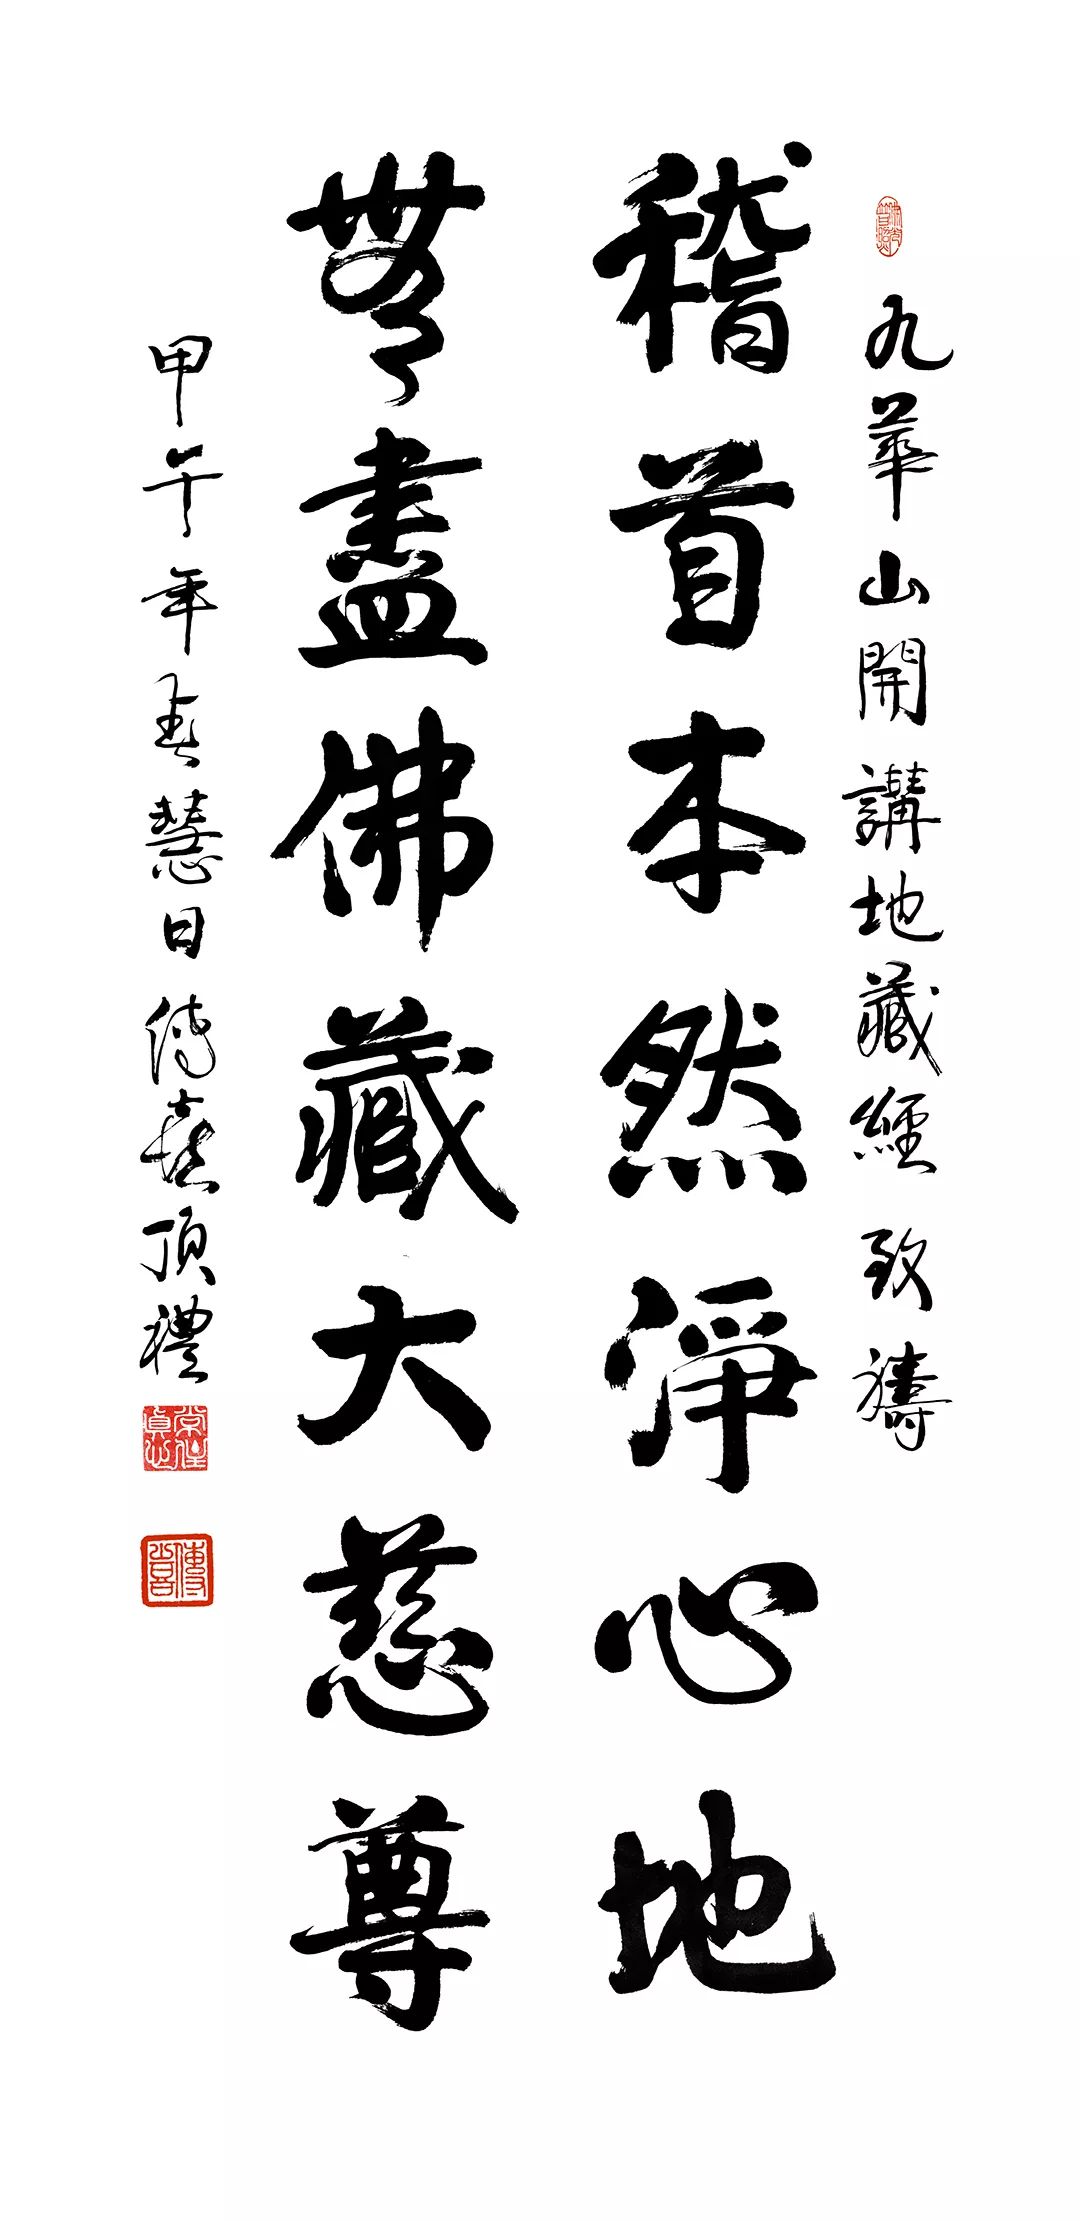 九華山開講地藏經 致禱
稽首本然淨心地
無盡佛藏大慈尊
甲午年春慧日傳喜頂禮
傳喜